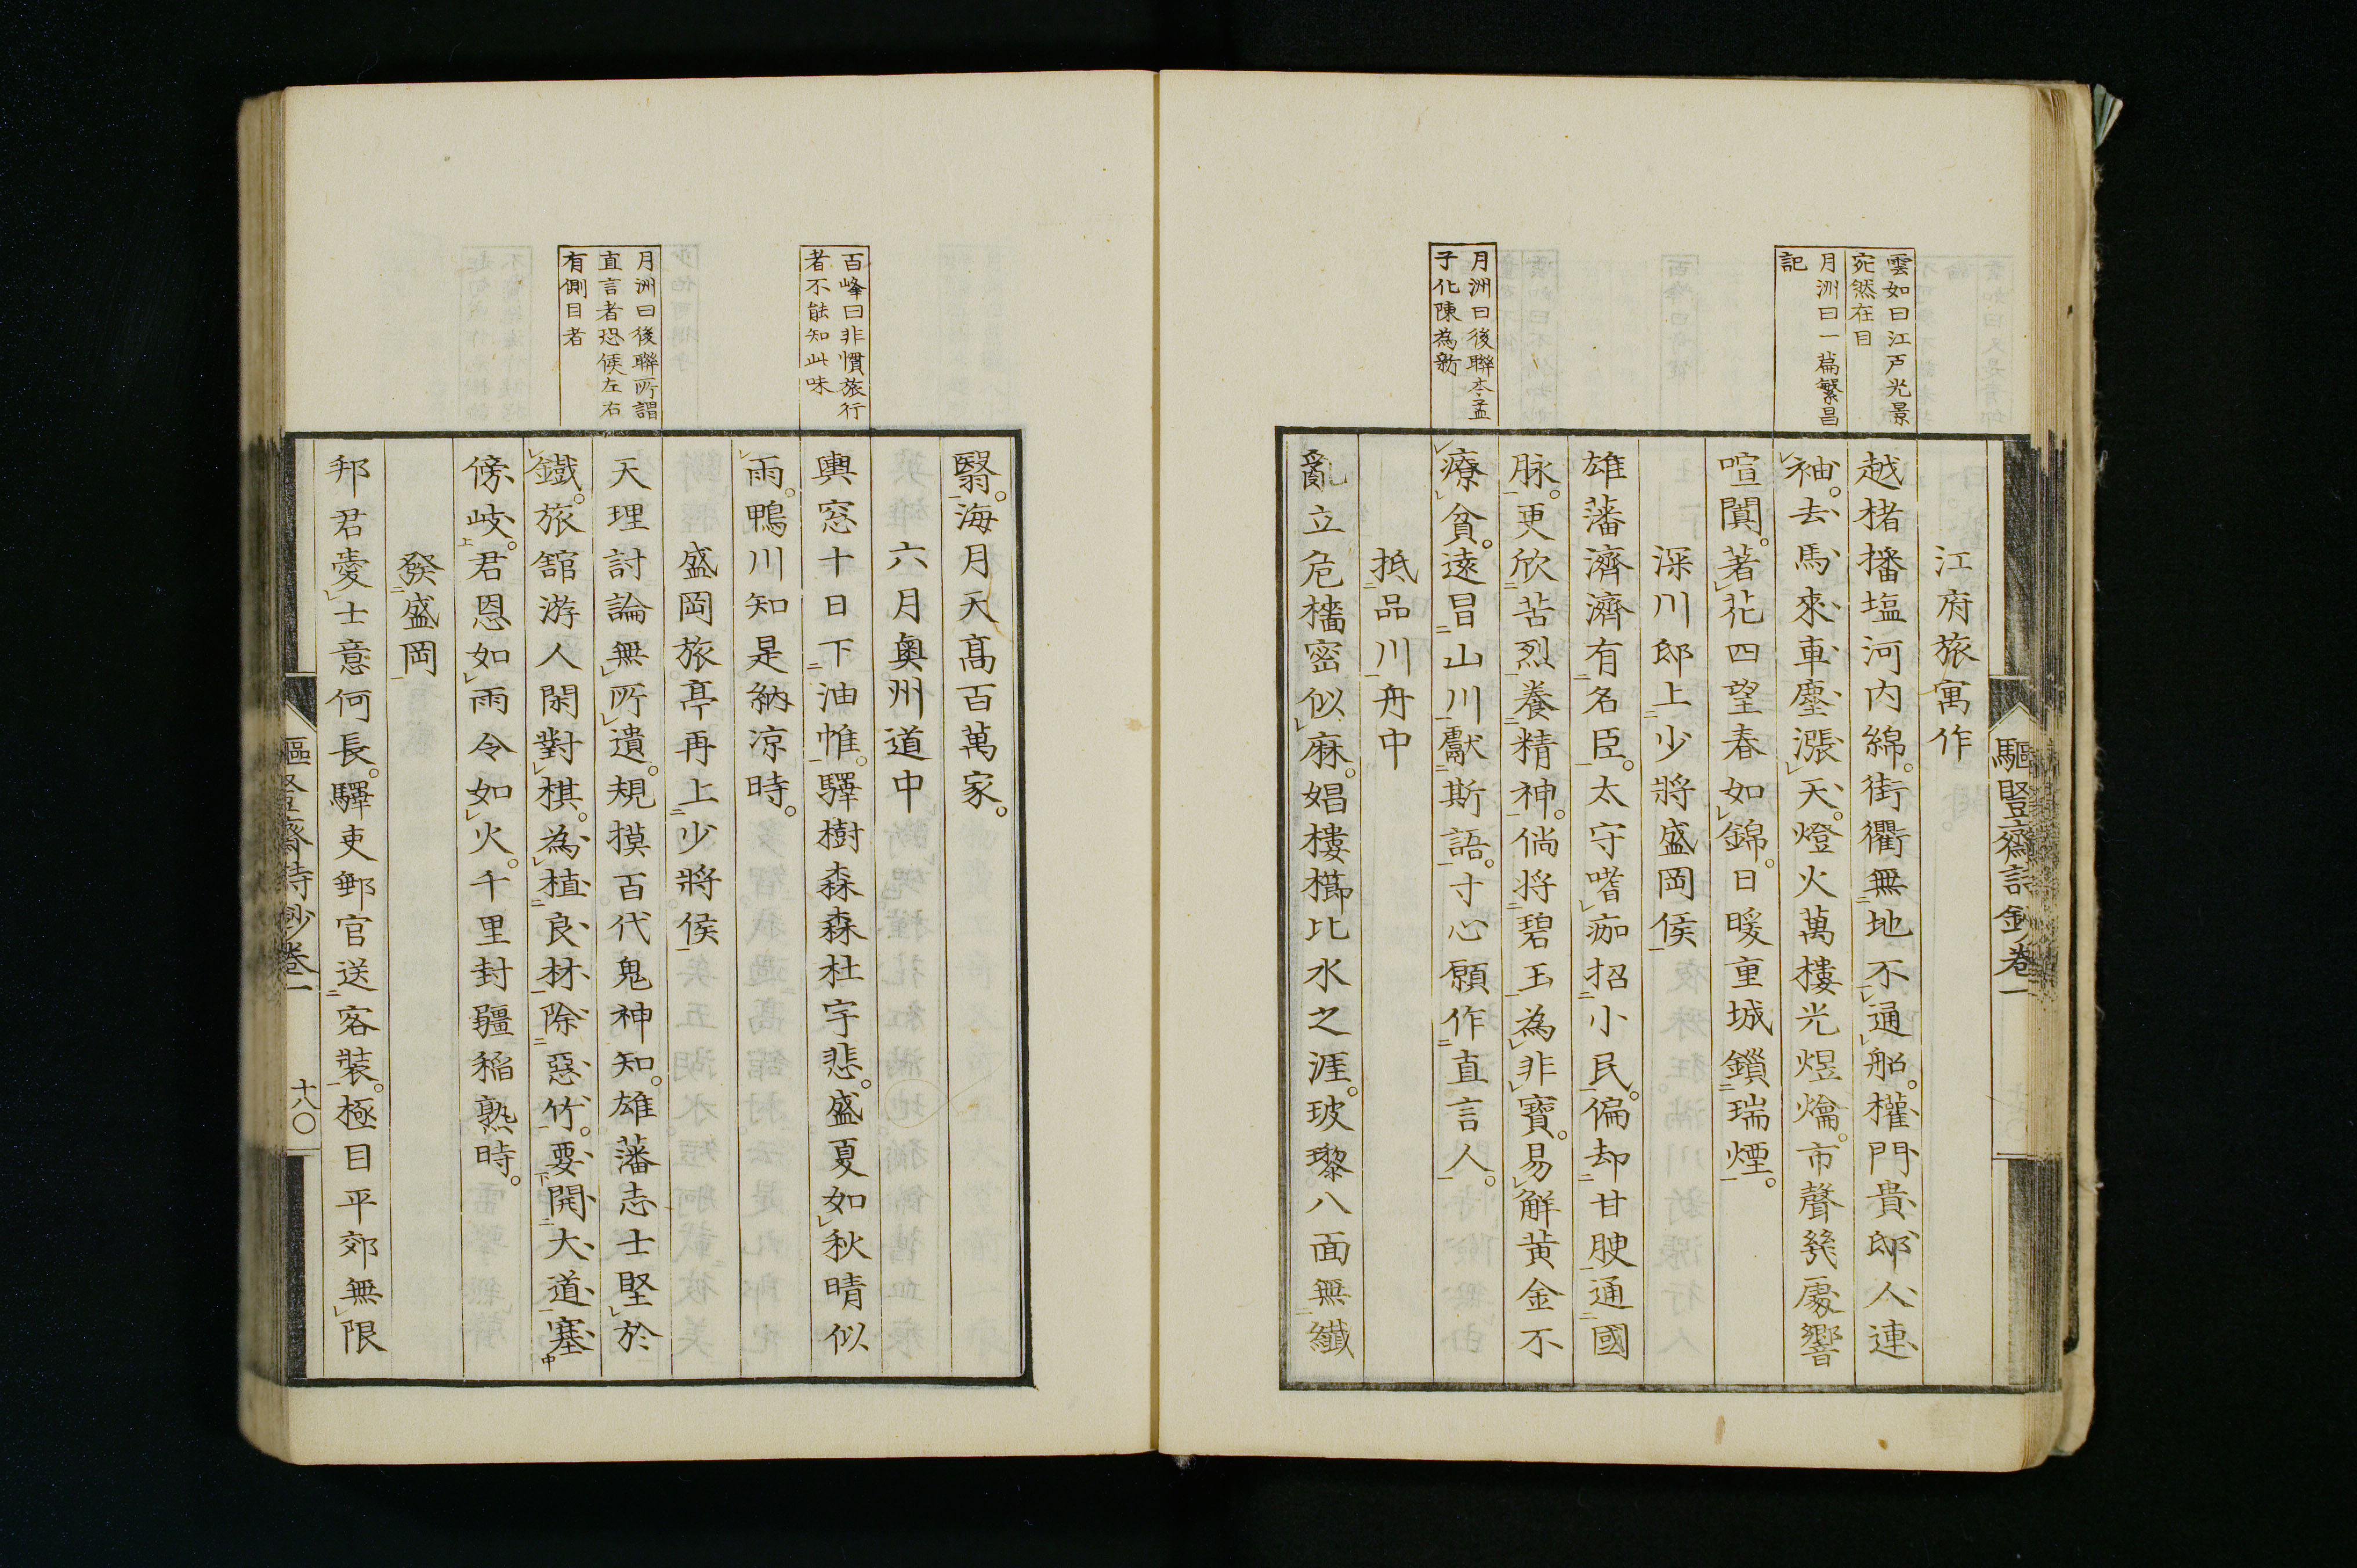 雲如曰江戸光景
宛然在目
月洲曰一篇繁昌
記
江府旅寓作
越楮播塩河内綿。街衢無地不通船。權門貴邸人連
袖。去馬來車塵漲天。燈火萬樓光煜爚。市聲幾處響
喧闐。著花四望春如錦。日暖重城鎖瑞煙。
深川邸上少將盛岡侯
雄藩濟濟有名臣。太守嗜痂招小民。偏却甘腴通國
脉。更欣苦烈養精神。倘将碧玉為非寶。易解黄金不
月洲曰後聯李孟
子化陳為新
療貧。遠冒山川獻斯語。寸心願作直言人。
抵品川舟中
亂立危檣密似麻。娼樓櫛比水之涯。玻瓈八面無纖
翳。海月天髙百萬家。
六月奥州道中
百峰曰非慣旅行
者不能知此味
輿窓十日下油帷。驛樹森森杜宇悲。盛夏如秋晴似
雨。鴨川知是納凉時。
盛岡旅亭再上少將侯
月洲曰後聯所謂
直言者恐候左右
有側目者
天理討論無所遺。規摸百代鬼神知。雄藩志士堅於
鐵。旅舘游人閑對棋。為植良材除惡竹。要開大道塞
傍岐。君恩如雨令如火。千里封疆稻熟時。
發盛岡
邦君愛士意何長。驛吏郵官送客裝。極目平郊無限
驅豎齋詩鈔卷一
十八